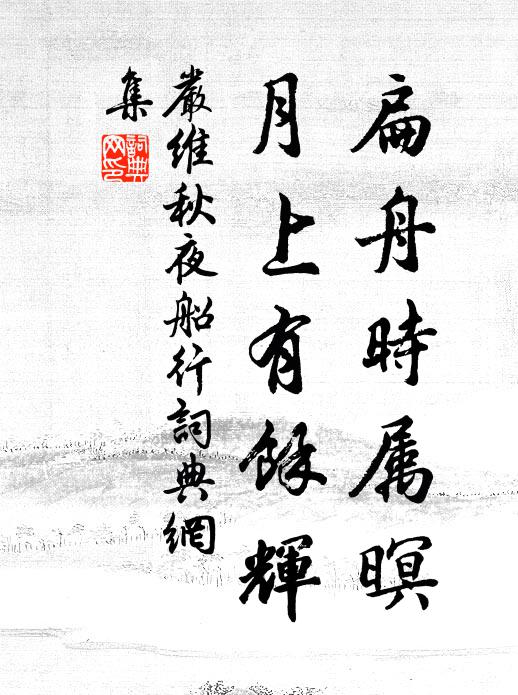 扁舟時属暝
月上有餘輝
嚴維秋夜船行詞典網
集
詞典
网印